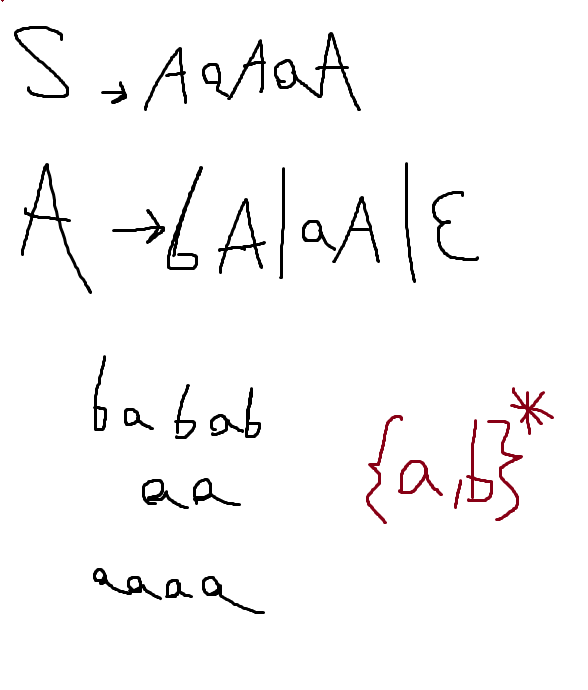 S → AaAaA
A → bA|aA|ε
babab
aa
{a,b}*
aaaa